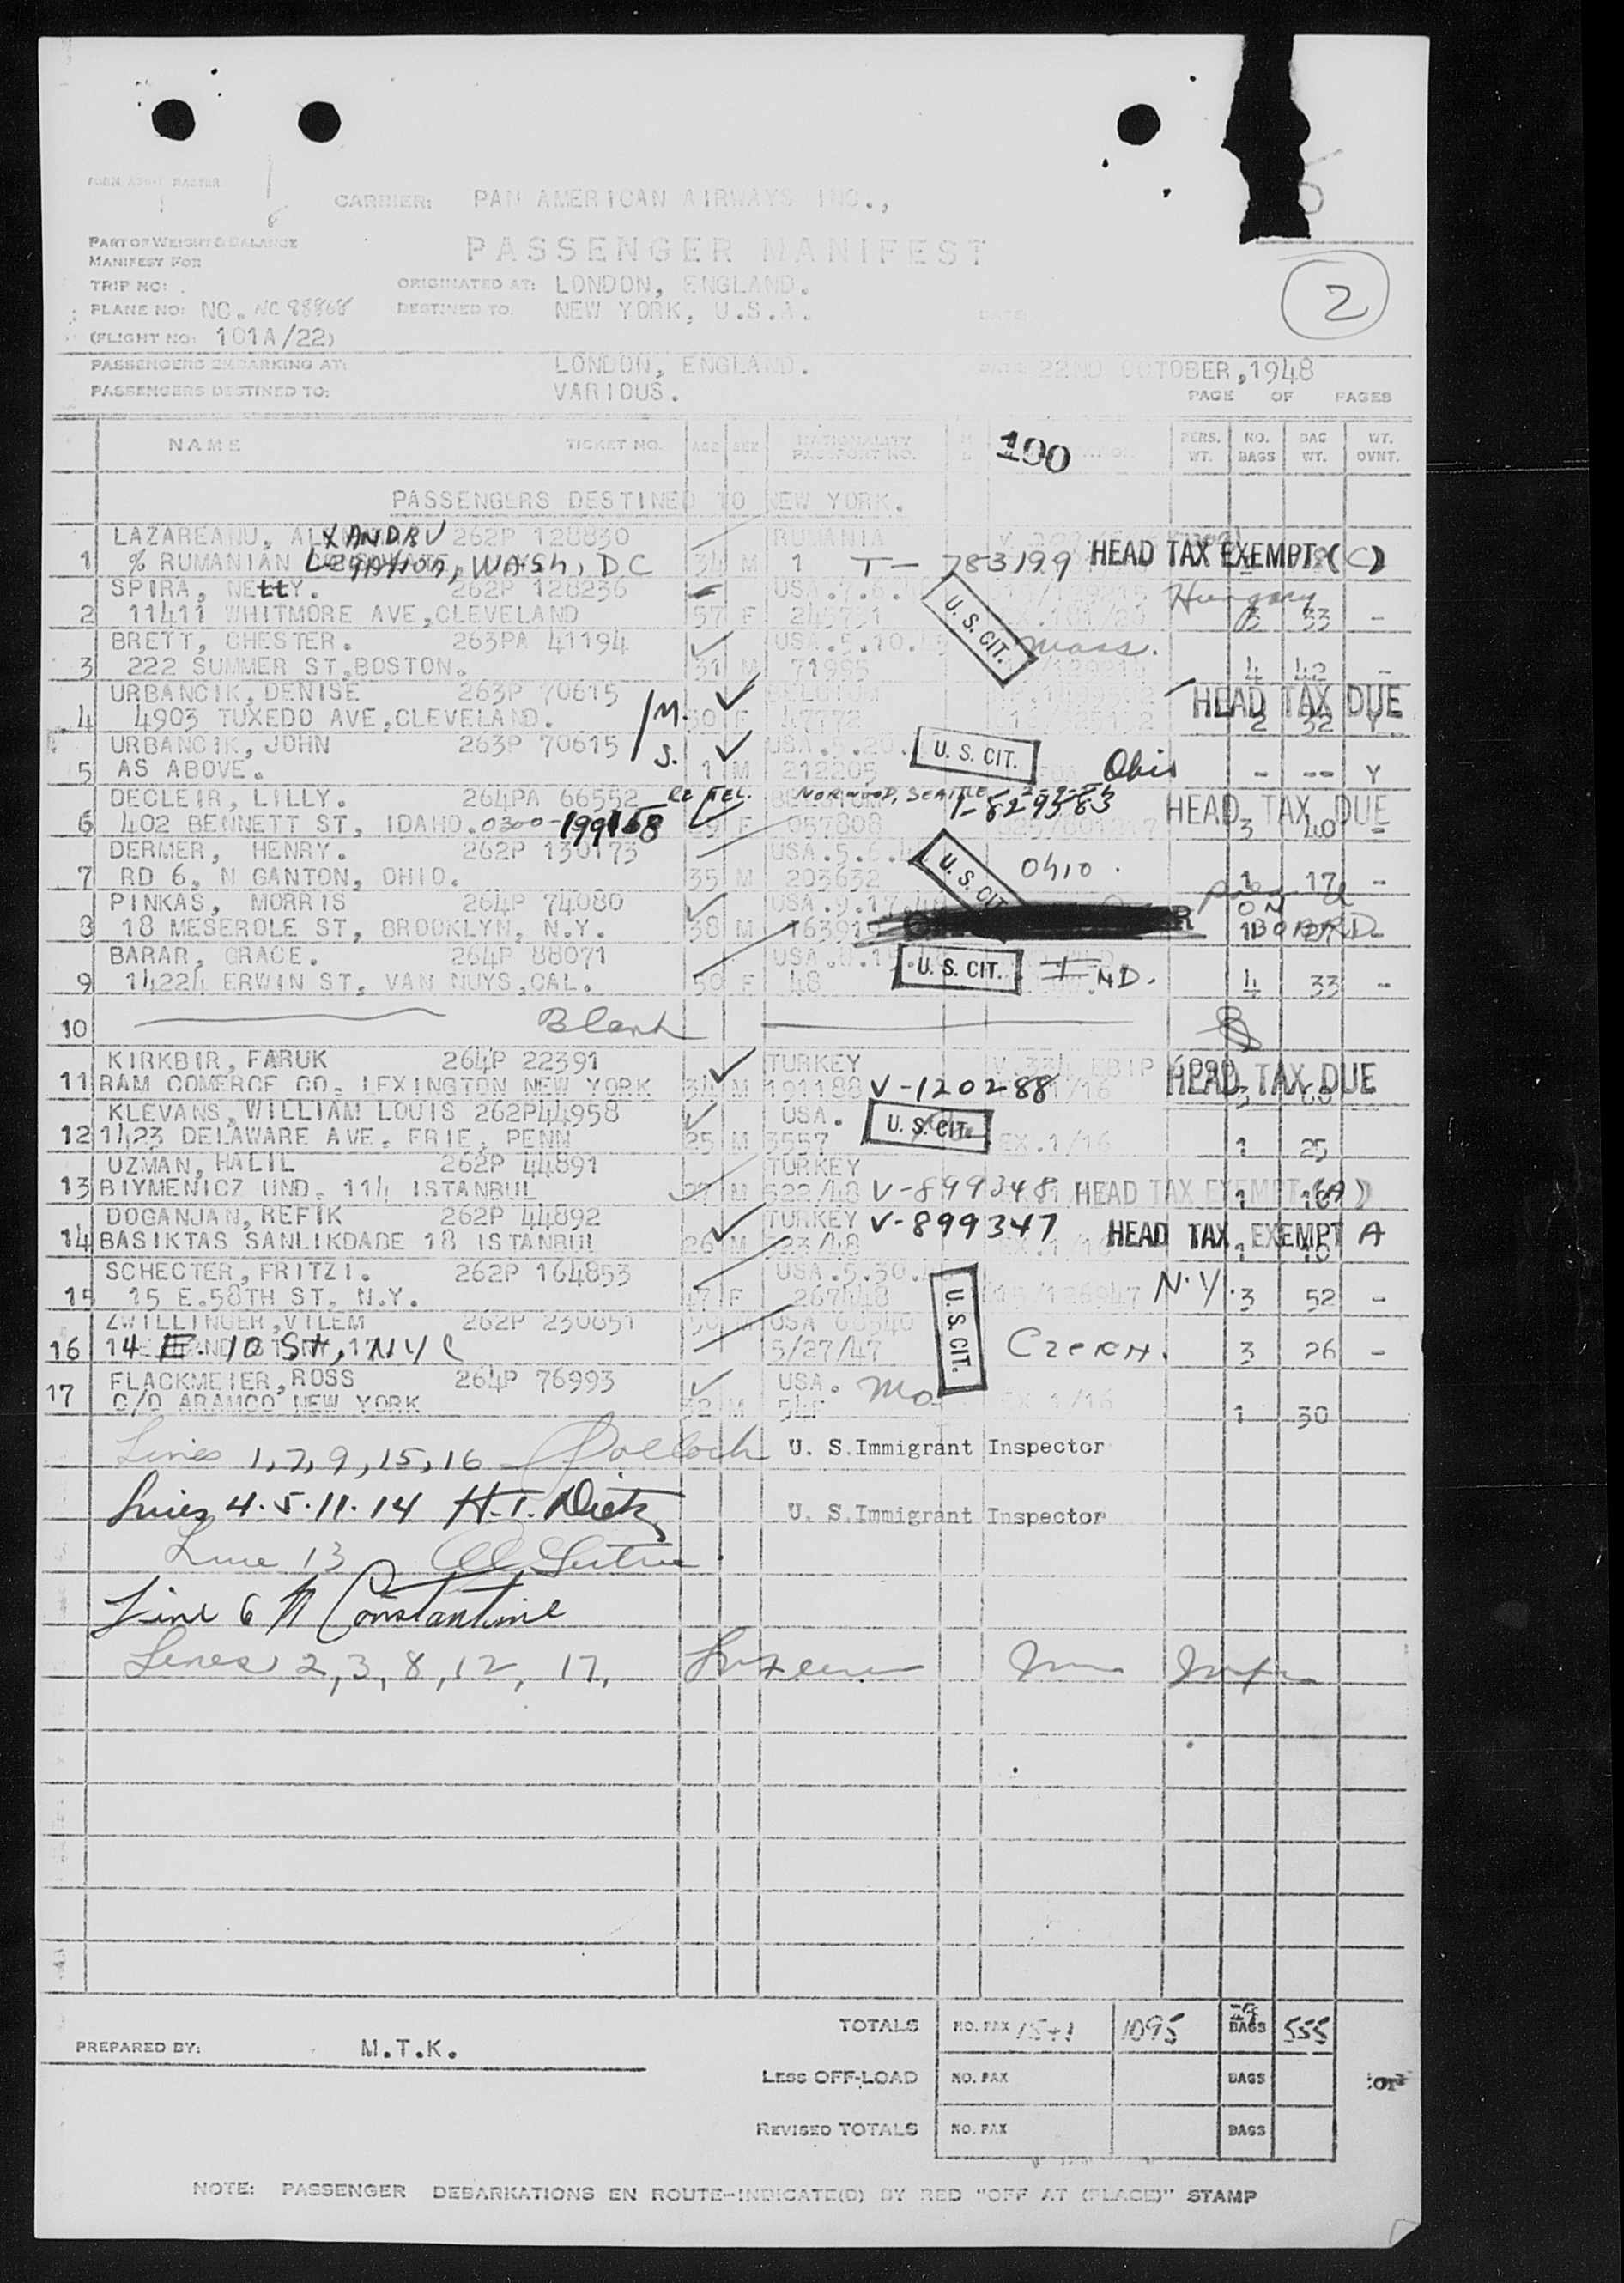 FORM MASTER
CARRIER: PAN AMERICAN AIRWAYS INC.,
PART OF WEIGHT & BALANCE
MANIFEST FOR
PASSENGER MANIFEST
TRIP NO:
ORIGINATED AT: LONDON, ENGLAND.
2
PLANE NO: NC. NC 88868
DESTINED TO. NEW YORK, U.S.A. DATE
(FLIGHT NO: 101A/22)
PASSENGERS EMBARKING AT: LONDON, ENGLAND. DATE 22ND OCTOBER, 1948
PASSENGERS DESTINED TO: VARIOUS. PAGE OF PAGES
NAME TICKET NO. AGE SEX NATIONALITY PASSPORT NO. 100 PERS. WT. NO. BAGS BAG WT. WT. OVNT.
PASSENGERS DESTINED TO NEW YORK.
LAZAREANU, ALXANDRU 262P 128830 RUMANIA
1 % RUMANIAN LEGATION, WASH, DC 34 M 1 T-783199 HEAD TAX EXEMPT (C)
SPIRA, NETTY. 262P 128236 USA.7.6. Hungary
2 11411 WHITMORE AVE, CLEVELAND 57 F 245731 U.S. CIT. 33 -
BRETT, CHESTER. 263PA 41194 USA.5.10. Mass.
3 222 SUMMER ST, BOSTON. 31 M 71995 4 42 -
URBANCIK, DENISE 263P 70615 M. BELGIUM HEAD TAX DUE
4 4903 TUXEDO AVE, CLEVELAND. 30 F 2 32 Y
URBANCIK, JOHN 263P 70615 S. USA.5.20. U.S. CIT. Ohio
5 AS ABOVE. 1 M 212205 - -- Y
DECLEIR, LILLY. 264PA 66552 RE TEL. NORWOOD, SEATTLE HEAD TAX DUE
6 402 BENNETT ST, IDAHO. 0300-199168 F 057808 3 40 -
DERMER, HENRY. 262P 130173 USA.5.6. U.S. CIT. Ohio.
7 RD 6, N CANTON, OHIO. 35 M 203632 1 17 -
PINKAS, MORRIS 264P 74080 USA.9.17.48 ON
8 18 MESEROLE ST, BROOKLYN, N.Y. 38 M BOARD
BARAR, GRACE. 264P 88071 U.S. CIT. IND.
9 14224 ERWIN ST, VAN NUYS, CAL. 50 F 48 4 33 -
10 Blank
KIRKBIR, FARUK 264P 22391 TURKEY
11 RAM COMERCE CO. LEXINGTON NEW YORK 34 M 191188 V-120288 1/16 HEAD TAX DUE
KLEVANS, WILLIAM LOUIS 262P44958 USA. U.S. CIT.
12 1423 DELAWARE AVE. ERIE, PENN 25 M 3557 EX.1/16 1 25
UZMAN, HALIL 262P 44891 TURKEY
13 BIYMENICZ UND. 114 ISTANBUL 27 M 522/48 V-899348 HEAD TAX EXEMPT (A)
DOGANJAN, REFIK 262P 44892 TURKEY V-899347 HEAD TAX EXEMPT A
14 BASIKTAS SANLIKDADE 18 ISTANBUL 26 M 523/48
SCHECTER, FRITZI. 262P 164853 USA.5.30. U.S. CIT. N.Y.
15 15 E.58TH ST. N.Y. 47 F 267448 3 52 -
ZWILLINGER, VILEM 262P 230651 USA 68540
16 14 E. 10 St, NYC 5/27/47 Czech. 3 26 -
FLACKMEIER, ROSS 264P 76993 USA. Mo
17 C/O ARAMCO NEW YORK 32 M EX.1/16 1 30
Lines 1,7,9,15,16 Pollock U. S. Immigrant Inspector
Lines 4.5.11.14 H.T. Dietz U. S. Immigrant Inspector
Line 13
Line 6 Constantine
Lines 2,3,8,12, 17,
TOTALS NO. PAX 15+1 1095 29 BAGS 555
PREPARED BY: M.T.K.
LESS OFF-LOAD NO. PAX BAGS
REVISED TOTALS NO. PAX BAGS
NOTE: PASSENGER DEBARKATIONS EN ROUTE-INDICATE(D) BY RED "OFF AT (PLACE)" STAMP